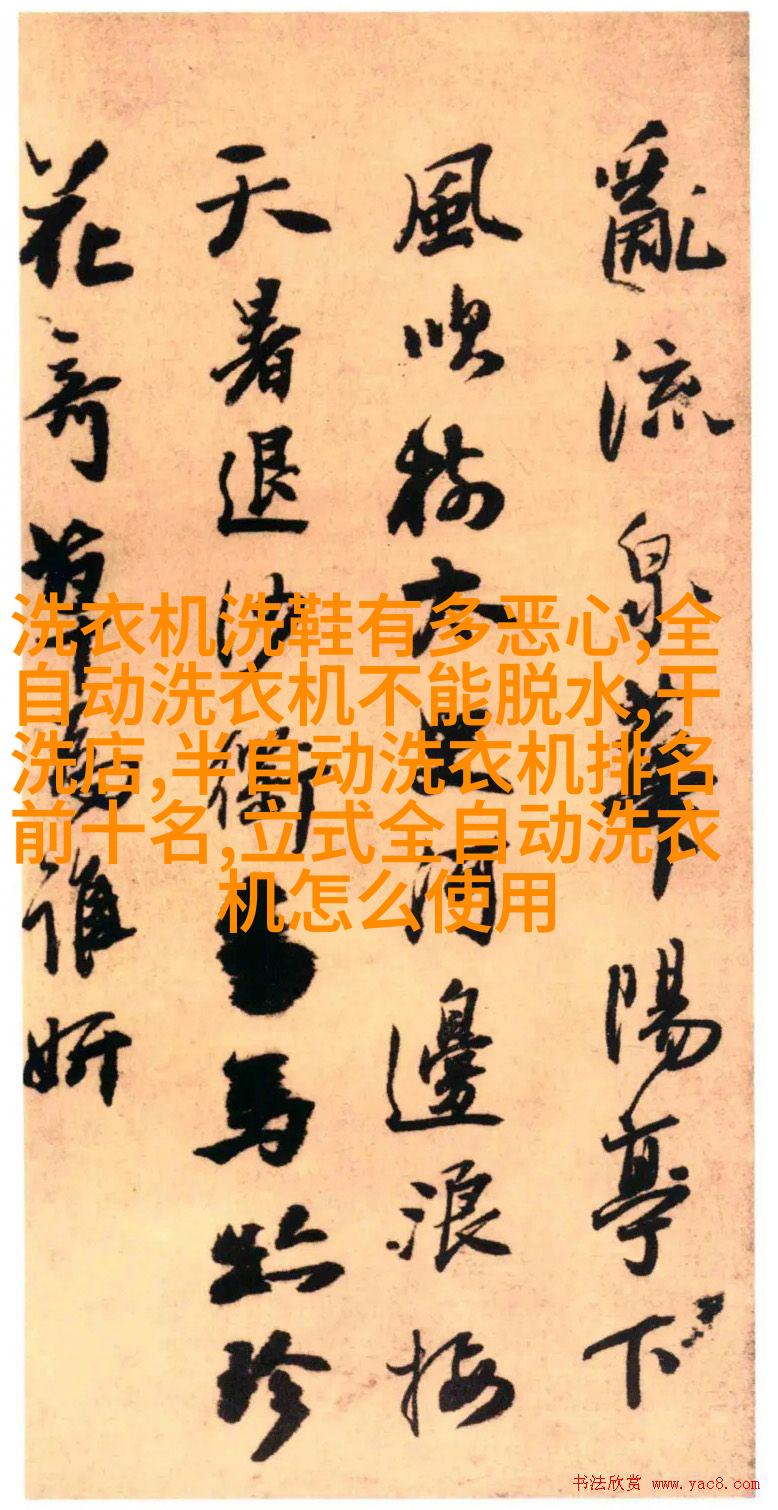 亂流泉華陽亭下
風吹樹
河邊浪接
天暑退沙
馬跡珍
花奇草
誰妍
洗衣机洗鞋有多恶心,全
自动洗衣机不能脱水,干
洗店,半自动洗衣机排名
前十名,立式全自动洗衣
机怎么使用
书法欣赏 www.yac8.com